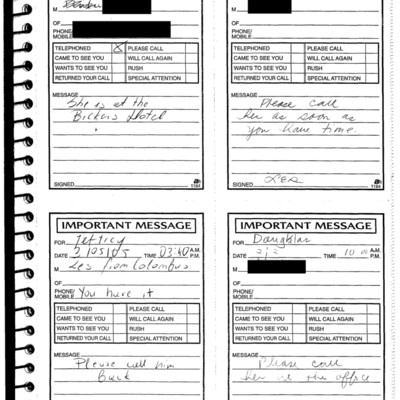 M
OF
PHONE/
MOBILE
TELEPHONED X PLEASE CALL
CAME TO SEE YOU WILL CALL AGAIN
WANTS TO SEE YOU RUSH
RETURNED YOUR CALL SPECIAL ATTENTION
MESSAGE
She is at the
Hotel
SIGNED
1184
M
OF
PHONE/
MOBILE
TELEPHONED PLEASE CALL
CAME TO SEE YOU WILL CALL AGAIN
WANTS TO SEE YOU RUSH
RETURNED YOUR CALL SPECIAL ATTENTION
MESSAGE
Please call
her as soon as
you have time.
SIGNED
1184
IMPORTANT MESSAGE
FOR Jeffrey
DATE 3/05/05 TIME 03:40 A.M.
P.M.
M Les from Colombus
OF
PHONE/
MOBILE You have it
TELEPHONED PLEASE CALL
CAME TO SEE YOU WILL CALL AGAIN
WANTS TO SEE YOU RUSH
RETURNED YOUR CALL SPECIAL ATTENTION
MESSAGE
Please call him
back
IMPORTANT MESSAGE
FOR
DATE TIME A.M.
P.M.
M
OF
PHONE/
MOBILE
TELEPHONED PLEASE CALL
CAME TO SEE YOU WILL CALL AGAIN
WANTS TO SEE YOU RUSH
RETURNED YOUR CALL SPECIAL ATTENTION
MESSAGE
Please call
her at the office